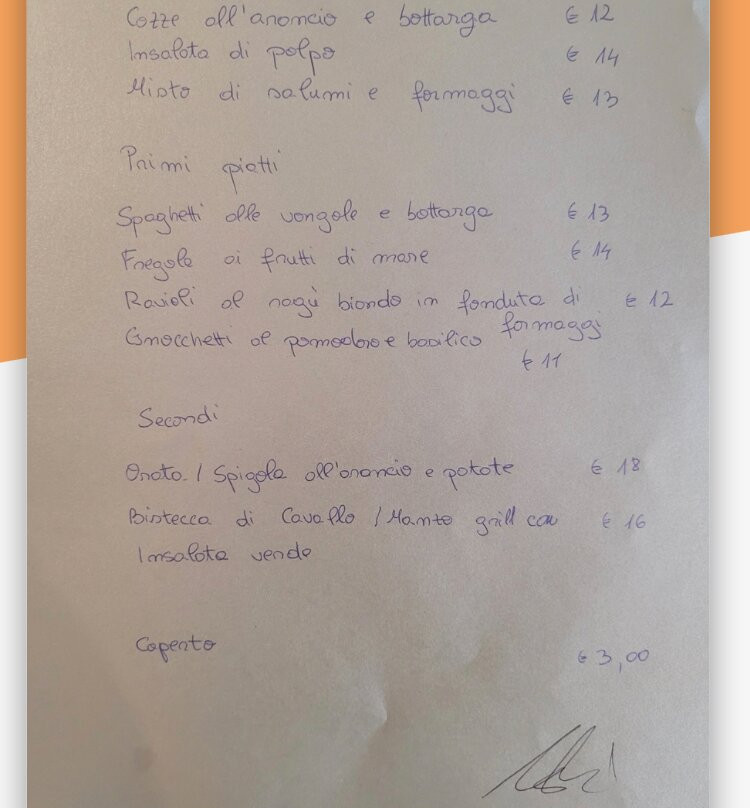 Cozze all'arancio e bottarga € 12
Insalata di polpo € 14
Misto di salumi e formaggi € 13
Primi piatti
Spaghetti alle vongole e bottarga € 13
Fregola ai frutti di mare € 14
Ravioli al ragù biondo in fonduta di € 12
formaggi
Gnocchetti al pomodoro e basilico
€ 11
Secondi
Orata / Spigola all'arancio e patate € 18
Bistecca di Cavallo / Manzo grill con € 16
Insalata verde
Coperto € 3,00